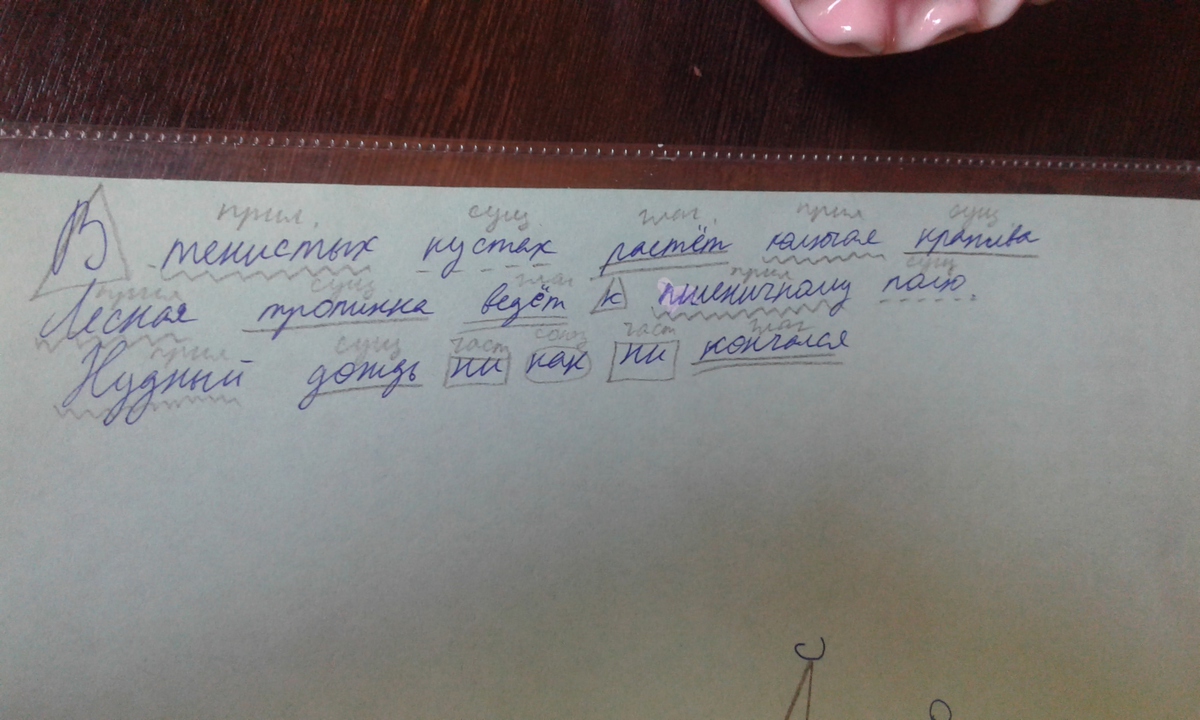 прил. сущ глаг. прил сущ
В тенистых кустах растёт колючая крапива
прил сущ глаг прил сущ
Лесная тропинка ведёт к пшеничному полю.
прил сущ част союз част глаг
Нудный дождь ни как ни кончался